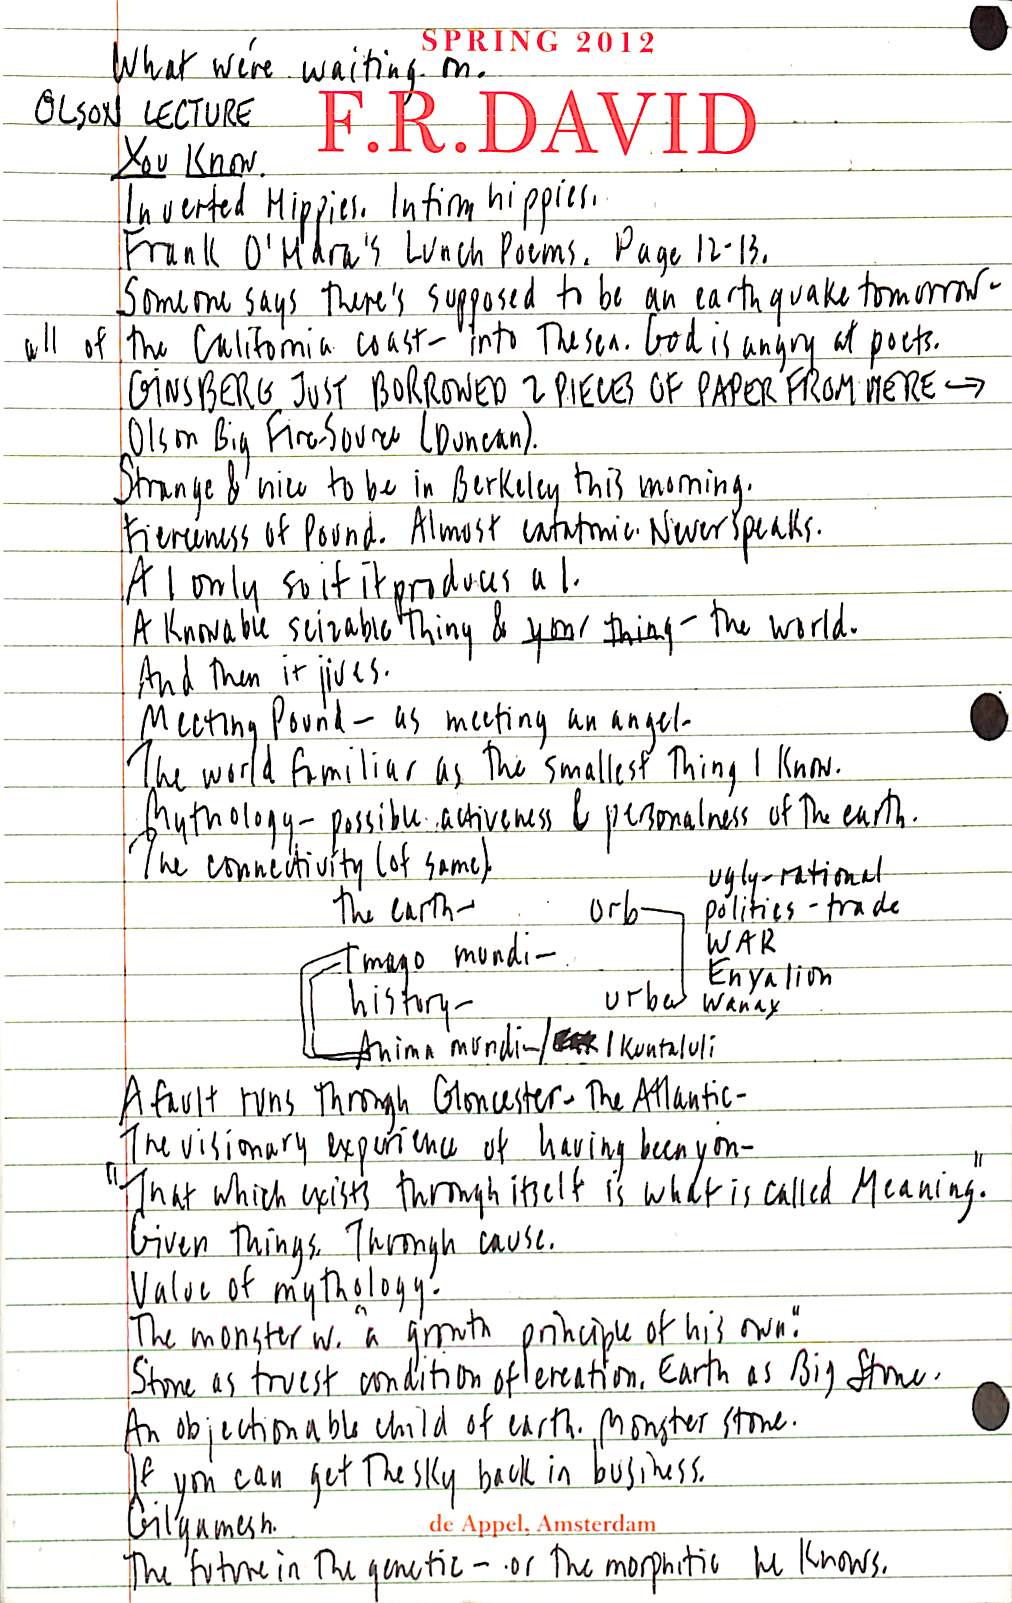 SPRING 2012
What we're waiting on.
OLSON LECTURE
F.R.DAVID
You Know.
Inverted Hippies. Infirm hippies.
Frank O'Hara's Lunch Poems. Page 12-13.
Someone says there's supposed to be an earthquake tomorrow-
all of the California coast- into The sea. God is angry at poets.
GINSBERG JUST BORROWED 2 PIECES OF PAPER FROM HERE →
Olson Big Fire Source (Duncan).
Strange & nice to be in Berkeley this morning.
Fierceness of Pound. Almost catatonic. Never speaks.
A 1 only so if it produces a 1.
A Knowable seizable Thing & your thing - the world.
And Then it jives.
Meeting Pound - as meeting an angel-
The world familiar as The smallest Thing I Know.
Mythology - possible activeness & personalness of The earth.
The connectivity (of same).
the earth-
Imago mundi-
history-
Anima mundi-/ / Kuntaluli
orb
urba
ugly-rational
politics - trade
WAR
Enyalion
wanax
A fault runs Through Gloucester - The Atlantic-
The visionary experience of having been you-
"That which exists through itself is what is called Meaning."
Given Things. Through cause.
Value of mythology.
The monster w. "a growth principle of his own".
Stone as truest condition of creation. Earth as Big Stone.
An objectionable child of earth. Monster stone.
If you can get The sky back in business.
Gilgamesh.
de Appel, Amsterdam
The future in The genetic - or The morphitic he Knows.